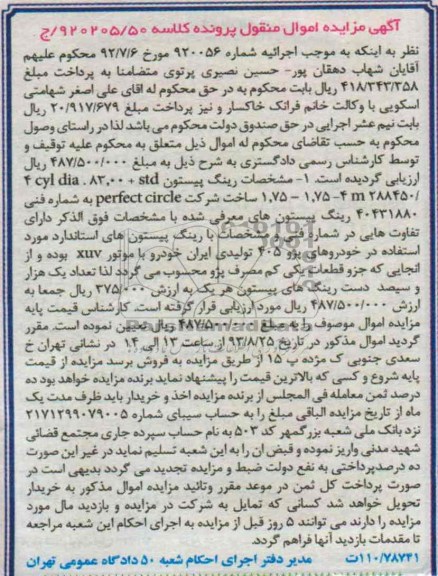 آگهی مزایده اموال منقول پرونده کلاسه ۹۲۰۲۰۵/۵۰/ج
نظر به اینکه به موجب اجرائیه شماره ۹۲۰۰۵۶ مورخ ۹۲/۷/۶ محکوم علیهم
آقایان شهاب دهقان پور- حسین نصیری پرتوی متضامنا به پرداخت مبلغ
۴۱۸/۳۴۳/۳۵۸ ریال بابت محکوم به در حق محکوم له اقای علی اصغر شهامتی
اسکویی با وکالت خانم فرانک خاکسار و نیز پرداخت مبلغ ۲۰/۹۱۷/۶۷۹ ریال
بابت نیم عشر اجرایی در حق صندوق دولت محکوم می باشد لذا در راستای وصول
محکوم به حسب تقاضای محکوم له اموال ذیل متعلق به محکوم علیه توقیف و
توسط کارشناس رسمی دادگستری به شرح ذیل به مبلغ ۴۸۷/۵۰۰/۰۰۰ ریال
ارزیابی گردیده است. ۱- مشخصات رینگ پیستون 4 cyl dia . ۸۳,۰۰ + std
۲۸۸۴۵۰/ 4 m-۱,۷۵ – ۱,۷۵ ساخت شرکت perfect circle به شماره فنی
۴۰۴۳۱۸۸۰ رینگ پیستون های معرفی شده با مشخصات فوق الذکر دارای
تفاوت هایی در شماره فنی و مشخصات با رینگ پیستون های استاندارد مورد
استفاده در خودروهای پژو ۴۰۵ تولیدی ایران خودرو با موتور xuv بوده و از
آنجایی که جزو قطعات یدکی کم مصرف پژو محسوب می گردد لذا تعداد یک هزار
و سیصد دست رینگ های پیستون هر یک به ارزش ۳۷۵۰۰۰ ریال جمعا به
ارزش ۴۸۷/۵۰۰/۰۰۰ ریال مورد ارزیابی قرار گرفته است. کارشناس قیمت پایه
مزایده اموال موصوف را به مبلغ ۴۸۷/۵۰۰/۰۰۰ ریال تعیین نموده است. مقرر
گردید اموال مذکور در تاریخ ۹۳/۸/۲۵ از ساعت ۱۳ الی ۱۴ در نشانی تهران خ
سعدی جنوبی ک مژده پ ۱۵ از طریق مزایده به فروش برسد مزایده از قیمت
پایه شروع و کسی که بالاترین قیمت را پیشنهاد نماید برنده مزایده خواهد بود ده
درصد ثمن معامله فی المجلس از برنده مزایده اخذ و خریدار باید ظرف مدت یک
ماه از تاریخ مزایده الباقی مبلغ را به حساب سیبای شماره ۲۱۷۱۲۹۹۰۷۹۰۰۵
نزد بانک ملی شعبه بزرگمهر کد ۵۰۳ به نام حساب سپرده جاری مجتمع قضائی
شهید مدنی واریز نموده و قبض ان را به این شعبه تسلیم نماید در غیر این صورت
ده درصد پرداختی به نفع دولت ضبط و مزایده تجدید می گردد بدیهی است در
صورت پرداخت کل ثمن در موعد مقرر وتائید مزایده اموال مذکور به خریدار
تحویل خواهد شد کسانی که تمایل به شرکت در مزایده و بازدید مال مورد
مزایده را دارند می توانند ۵ روز قبل از مزایده به اجرای احکام این شعبه مراجعه
تا مقدمات بازدید آنها فراهم گردد.
۱۱۰/۷۸۷۴۱ت مدیر دفتر اجرای احکام شعبه ۵۰ دادگاه عمومی تهران